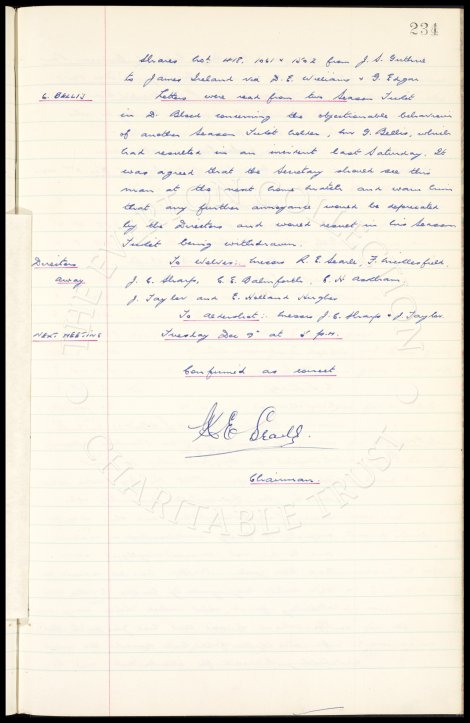 234
Shares Nos. 418, 1061 & 1502 from J. S. Guthrie
to James Ireland via D. E. Williams & G. Edgar
G. BELLIS
Letters were read from two Season Ticket
in D. Block concerning the objectionable behaviour
of another Season Ticket holder, Mr G. Bellis, which
had resulted in an incident last Saturday. It
was agreed that the Secretary should see this
man at the next home match and warn him
that any further annoyance would be deprecated
by the Directors and would result in his Season
Ticket being withdrawn.
Directors
away.
To Wolves: Messrs R. E. Searle, F. Micklesfield
J. C. Sharp, C. E. Balmforth, E. H. Astham,
J. Taylor and E. Holland Hughes
To Aldershot: Messrs J. C. Sharp & J. Taylor
NEXT MEETING
Tuesday Dec 9th at 5 p.m.
Confirmed as correct
R E Searle.
Chairman.
THE EVERTON COLLECTION
CHARITABLE TRUST